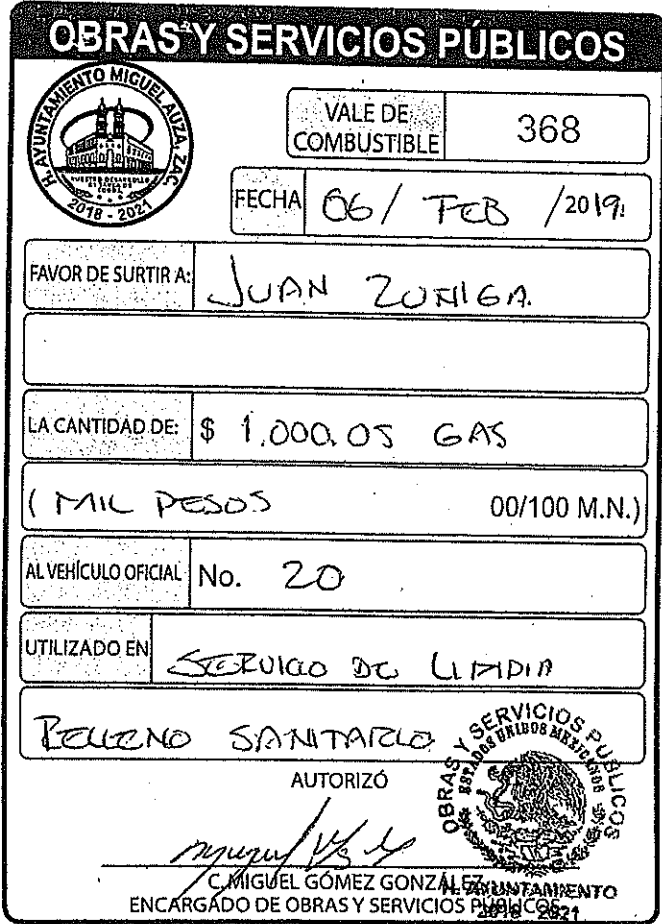 OBRAS Y SERVICIOS PÚBLICOS
H. AYUNTAMIENTO MIGUEL AUZA, ZAC.
2018 - 2021
VALE DE COMBUSTIBLE 368
FECHA 06/ FEB /2019.
FAVOR DE SURTIR A: JUAN ZUÑIGA.
LA CANTIDAD DE: $ 1,000.05 GAS
( MIL PESOS 00/100 M.N.)
AL VEHÍCULO OFICIAL No. 20
UTILIZADO EN SERVICIO DE
RELLENO SANITARIO
OBRAS Y SERVICIOS PUBLICOS
ESTADOS UNIDOS MEXICANOS
AUTORIZÓ
C.MIGUEL GÓMEZ GONZÁLEZ
H. AYUNTAMIENTO
ENCARGADO DE OBRAS Y SERVICIOS PÚBLICOS
2018 - 2021